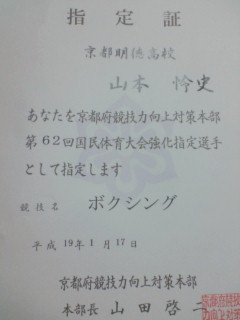 指定証
京都明徳高校
山本 怜史
あなたを京都府競技力向上対策本部
第62回国民体育大会強化指定選手
として指定します
競技名 ボクシング
平成 19年1月17日
京都府競技力向上対策本部
本部長 山田啓二